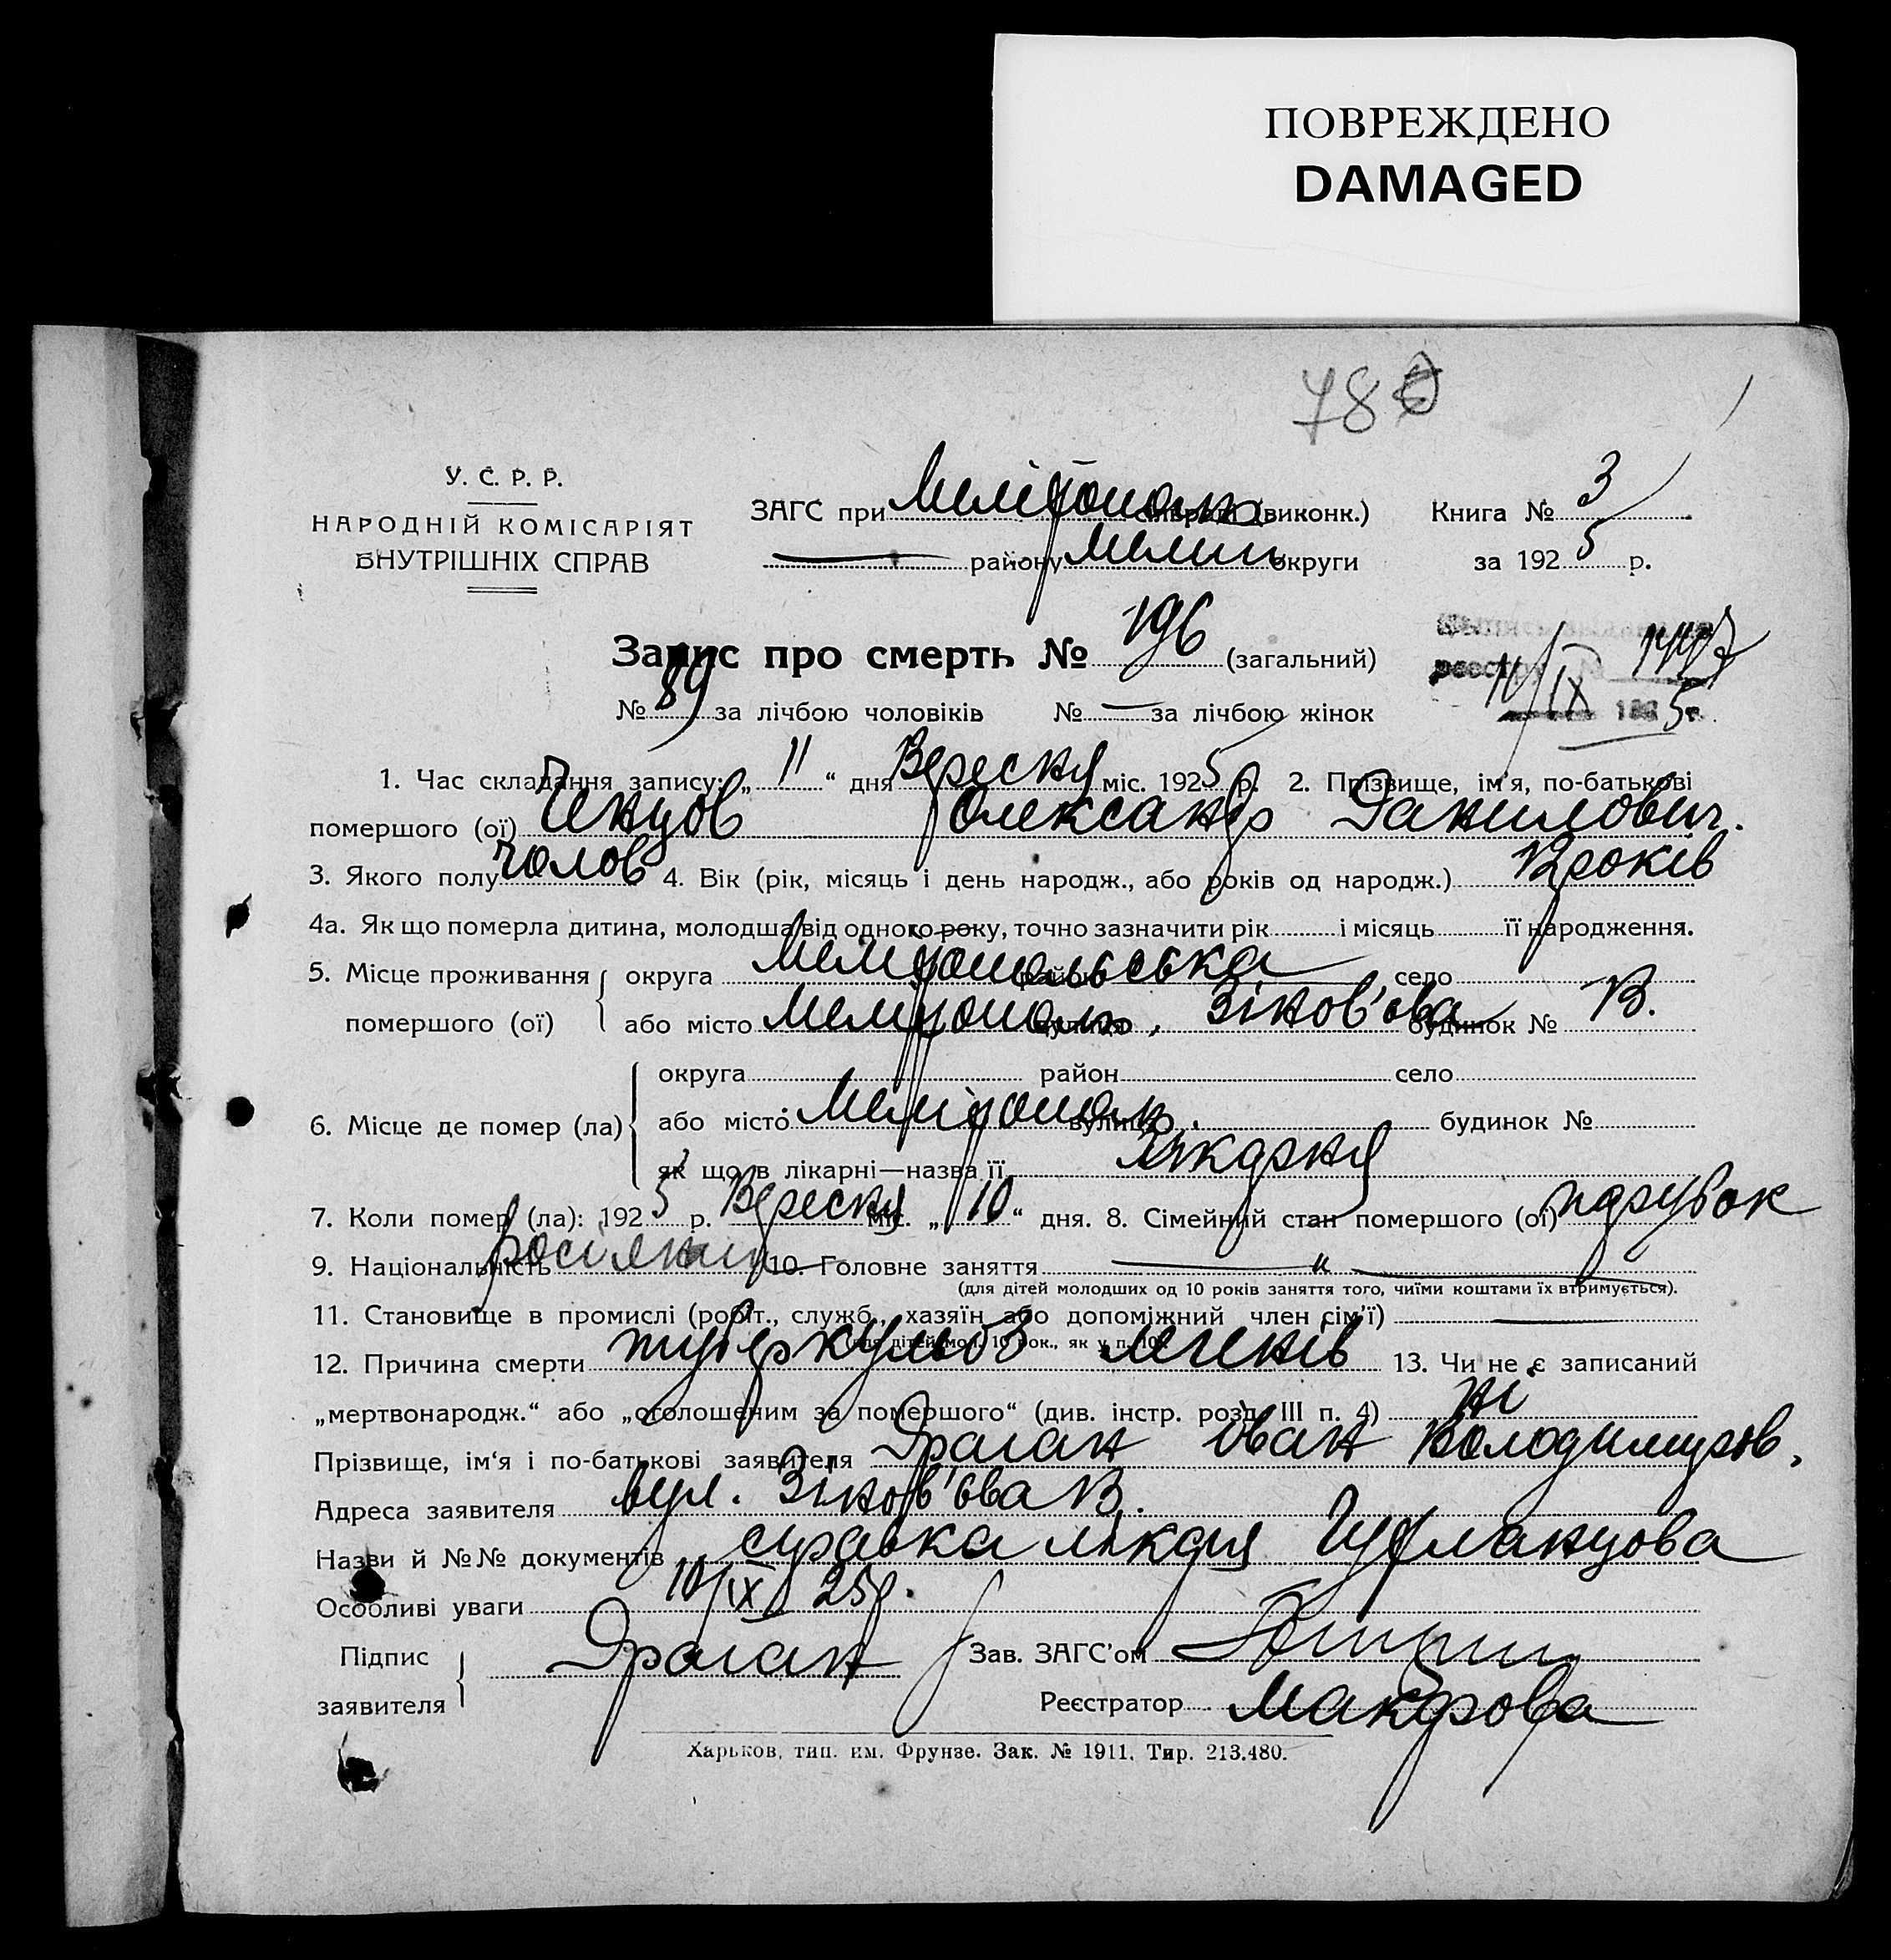 ПОВРЕЖДЕНО
DAMAGED
78
У. С. Р. Р.
НАРОДНІЙ КОМІСАРІЯТ
ВНУТРІШНІХ СПРАВ
ЗАГС при Мелітополь (виконк.) Книга № 3
— району Меліт округи за 1925 р.
Запис про смерть № 196 (загальний)
№ 89 за лічбою чоловіків № — за лічбою жінок
реєстру 11/IX 1925 г.
1. Час складання запису: „ 11 “ дня Вересня міс. 1925 р. 2. Прізвище, ім'я, по-батькові
помершого (ої) Ченцов Олександр Данилович.
3. Якого полу чолов 4. Вік (рік, місяць і день народж., або років од народж.) років
4а. Як що померла дитина, молодша від одного року, точно зазначити рік і місяць її народження.
5. Місце проживання помершого (ої) округа Мелітопольська район село
або місто Мелітополь, вулиця Зінов'єва будинок №
6. Місце де помер (ла) округа район село
або місто Мелітополь. вулиця будинок №
як що в лікарні—назва її Лікарня
7. Коли помер (ла): 1925 р. Вересня міс. „ 10 “ дня. 8. Сімейний стан помершого (ої) парубок
9. Національність росіянин 10. Головне заняття — „ —
(для дітей молодших од 10 років заняття того, чиїми коштами їх втримується).
11. Становище в промислі (робіт., служб., хазяїн або допоміжний член сім'ї) —
(для дітей мол. 10 рок., як у п. 10)
12. Причина смерти туберкульоз легенів 13. Чи не є записаний
„мертвонародж.“ або „оголошеним за помершого“ (див. інстр. розд. III п. 4) ні
Прізвище, ім‘я і по-батькові заявителя Драган Іван Володимиров.
Адреса заявителя вул. Зінов'єва
Назви й №№ документів справка лікаря
Особливі уваги 10/IX 25 р.
Підпис заявителя Драган Зав. ЗАГС'ом
Реєстратор Макарова
Харьков, тип. им. Фрунзе. Зак. № 1911. Тир. 213.480.